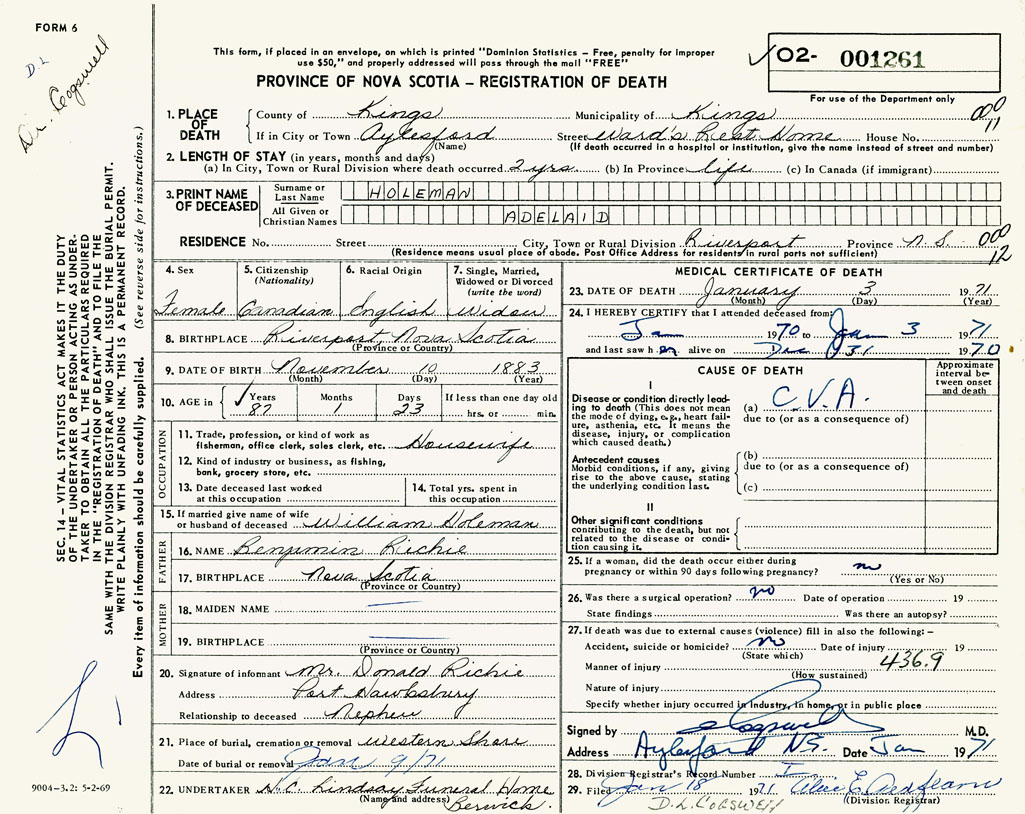 FORM 6
D.L
Dr. Cogswell
This form, if placed in an envelope, on which is printed "Dominion Statistics – Free, penalty for improper
use $50," and properly addressed will pass through the mail "FREE"
PROVINCE OF NOVA SCOTIA – REGISTRATION OF DEATH
✓ O2- 001261
For use of the Department only
1. PLACE OF DEATH
County of Kings Municipality of Kings 000
If in City or Town Aylesford Street Ward's Rest Home House No. 11
(Name) (If death occurred in a hospital or institution, give the name instead of street and number)
2. LENGTH OF STAY (in years, months and days)
(a) In City, Town or Rural Division where death occurred 2 yrs (b) In Province life (c) In Canada (if immigrant)
3. PRINT NAME OF DECEASED
Surname or Last Name HOLEMAN
All Given or Christian Names ADELAID
RESIDENCE No. Street City, Town or Rural Division Riverport Province N.S. 000
(Residence means usual place of abode. Post Office Address for residents in rural parts not sufficient) 12
4. Sex 5. Citizenship (Nationality) 6. Racial Origin 7. Single, Married, Widowed or Divorced (write the word)
Female Canadian English Widow
8. BIRTHPLACE Riverport, Nova Scotia
(Province or Country)
9. DATE OF BIRTH November 10 1883
(Month) (Day) (Year)
10. AGE in ✓ Years Months Days If less than one day old
87 1 23 hrs. or min.
OCCUPATION
11. Trade, profession, or kind of work as
fisherman, office clerk, sales clerk, etc. Housewife
12. Kind of industry or business, as fishing,
bank, grocery store, etc.
13. Date deceased last worked
at this occupation
14. Total yrs. spent in
this occupation
15. If married give name of wife
or husband of deceased William Holeman
FATHER
16. NAME Benjimin Richie
17. BIRTHPLACE Nova Scotia
(Province or Country)
MOTHER
18. MAIDEN NAME —
19. BIRTHPLACE —
(Province or Country)
20. Signature of informant Mr. Donald Richie
Address Port Hawksbury
Relationship to deceased Nephew
21. Place of burial, cremation or removal Western Shore
Date of burial or removal Jan 9/71
22. UNDERTAKER H.C. Lindsay Funeral Home
(Name and address) Berwick.
MEDICAL CERTIFICATE OF DEATH
23. DATE OF DEATH January 3 1971
(Month) (Day) (Year)
24. I HEREBY CERTIFY that I attended deceased from:
Jan 1970 to Jan 3 1971
and last saw h er alive on Dec 31 1970
CAUSE OF DEATH
Approximate interval between onset and death
I
Disease or condition directly leading to death (This does not
mean the mode of dying, e.g., heart failure, asthenia, etc. It means the
disease, injury, or complication
which caused death.)
(a) C.V.A.
due to (or as a consequence of)
Antecedent causes
Morbid conditions, if any, giving
rise to the above cause, stating
the underlying condition last.
(b)
due to (or as a consequence of)
(c)
II
Other significant conditions
contributing to the death, but not
related to the disease or condition causing it.
25. If a woman, did the death occur either during
pregnancy or within 90 days following pregnancy? no
(Yes or No)
26. Was there a surgical operation? no Date of operation 19
State findings Was there an autopsy?
27. If death was due to external causes (violence) fill in also the following:–
Accident, suicide or homicide? no Date of injury 19
(State which)
Manner of injury 436.9
(How sustained)
Nature of injury
Specify whether injury occurred in industry, in home, or in public place
Signed by Cogswell M.D.
Address Aylesford NS. Date Jan 1971
28. Division Registrar's Record Number 1
29. Filed Jan 18 1971
(Division Registrar)
D.L. COGSWELL
SEC. 14 – VITAL STATISTICS ACT MAKES IT THE DUTY
OF THE UNDERTAKER OR PERSON ACTING AS UNDERTAKER TO OBTAIN ALL THE PARTICULARS REQUIRED
IN THE "REGISTRATION OF DEATH" AND TO FILE THE
SAME WITH THE DIVISION REGISTRAR WHO SHALL ISSUE THE BURIAL PERMIT.
WRITE PLAINLY WITH UNFADING INK. THIS IS A PERMANENT RECORD.
Every item of information should be carefully supplied. (See reverse side for instructions.)
9004-3.2: 5-2-69